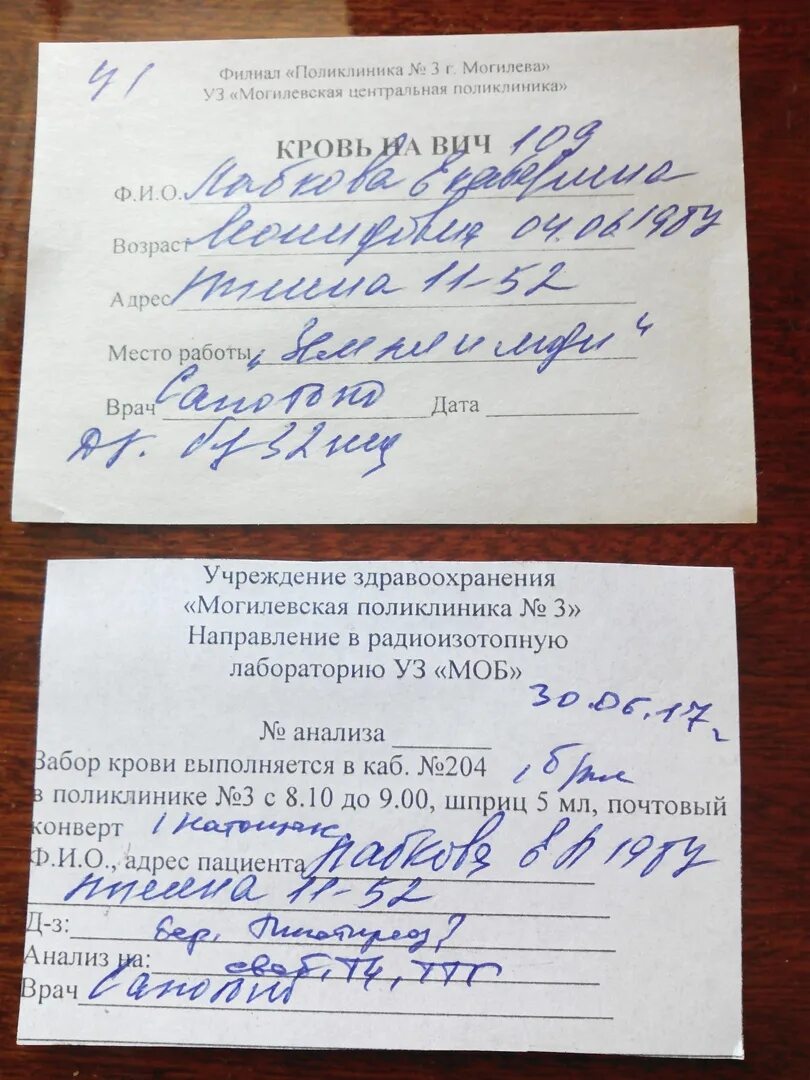 Филиал «Поликлиника № 3 г. Могилева»
УЗ «Могилевская центральная поликлиника»
КРОВЬ НА ВИЧ 109
Ф.И.О. Лабкова Екатерина
Возраст Леонидовна 04.06.1987
Адрес 11-52
Место работы „Земля и люди“
Врач Дата
Учреждение здравоохранения
«Могилевская поликлиника № 3»
Направление в радиоизотопную
лабораторию УЗ «МОБ»
30.06.17г
№ анализа
Забор крови выполняется в каб. №204
в поликлинике №3 с 8.10 до 9.00, шприц 5 мл, почтовый
конверт натощак
Ф.И.О., адрес пациента Лабкова Е Л 1987
11-52
Д-з: бер. Гипотиреоз?
Анализ на: своб. Т4, ТТГ
Врач